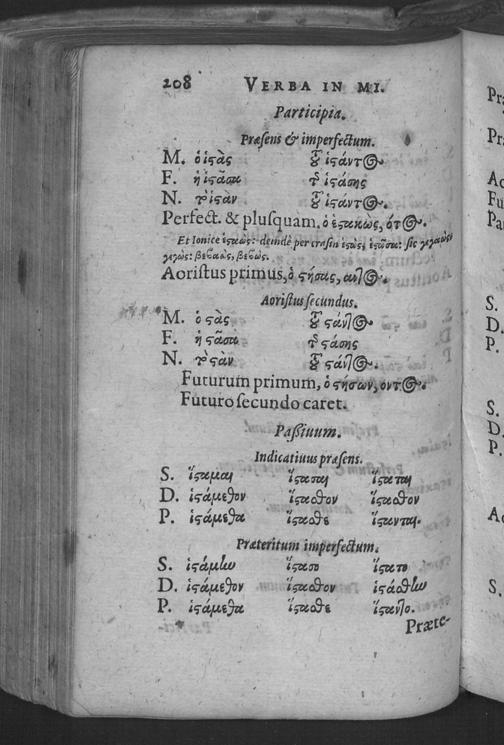 208 VERBA IN MI.
Participia.
Præsens & imperfectum.
M. ὁ ἱςὰς τȣ͂ ἱςάντος.
F. ἡ ἱςᾶσα τῆς ἱςάσης
N. τὸ ἱςὰν τȣ͂ ἱςάντος.
Perfect. & plusquàm. ὁ ἑςακὼς, ότος.
Et Ionicè ἑςαὼς: deinde per crasin ἑςὼς, ἑςῶσα: sic γεγαὼς
γεγὼς: βεβαὼς, βεβώς.
Aoristus primus, ὁ ςήσας, αντος.
Aoristus secundus.
M. ὁ ςὰς τȣ͂ ςάντος
F. ἡ ςᾶσα τῆς ςάσης
N. τὸ ςὰν τȣ͂ ςάντος.
Futurum primum, ὁ ςήσων, οντος.
Futuro secundo caret.
Passiuum.
Indicatiuus præsens.
S. ἵςαμαι ἵςασαι ἵςαται
D. ἱςάμεθον ἵςασθον ἵςασθον
P. ἱςάμεθα ἵςασθε ἵςανται.
Præteritum imperfectum.
S. ἱςάμην ἵςασο ἵςατο
D. ἱςάμεθον ἵςασθον ἱςάσθην
P. ἱςάμεθα ἵςασθε ἵςαντο.
Præte-
Pr
Pr
Ao
Fu
Pa
S.
D.
P.
S.
D.
P.
A
S.